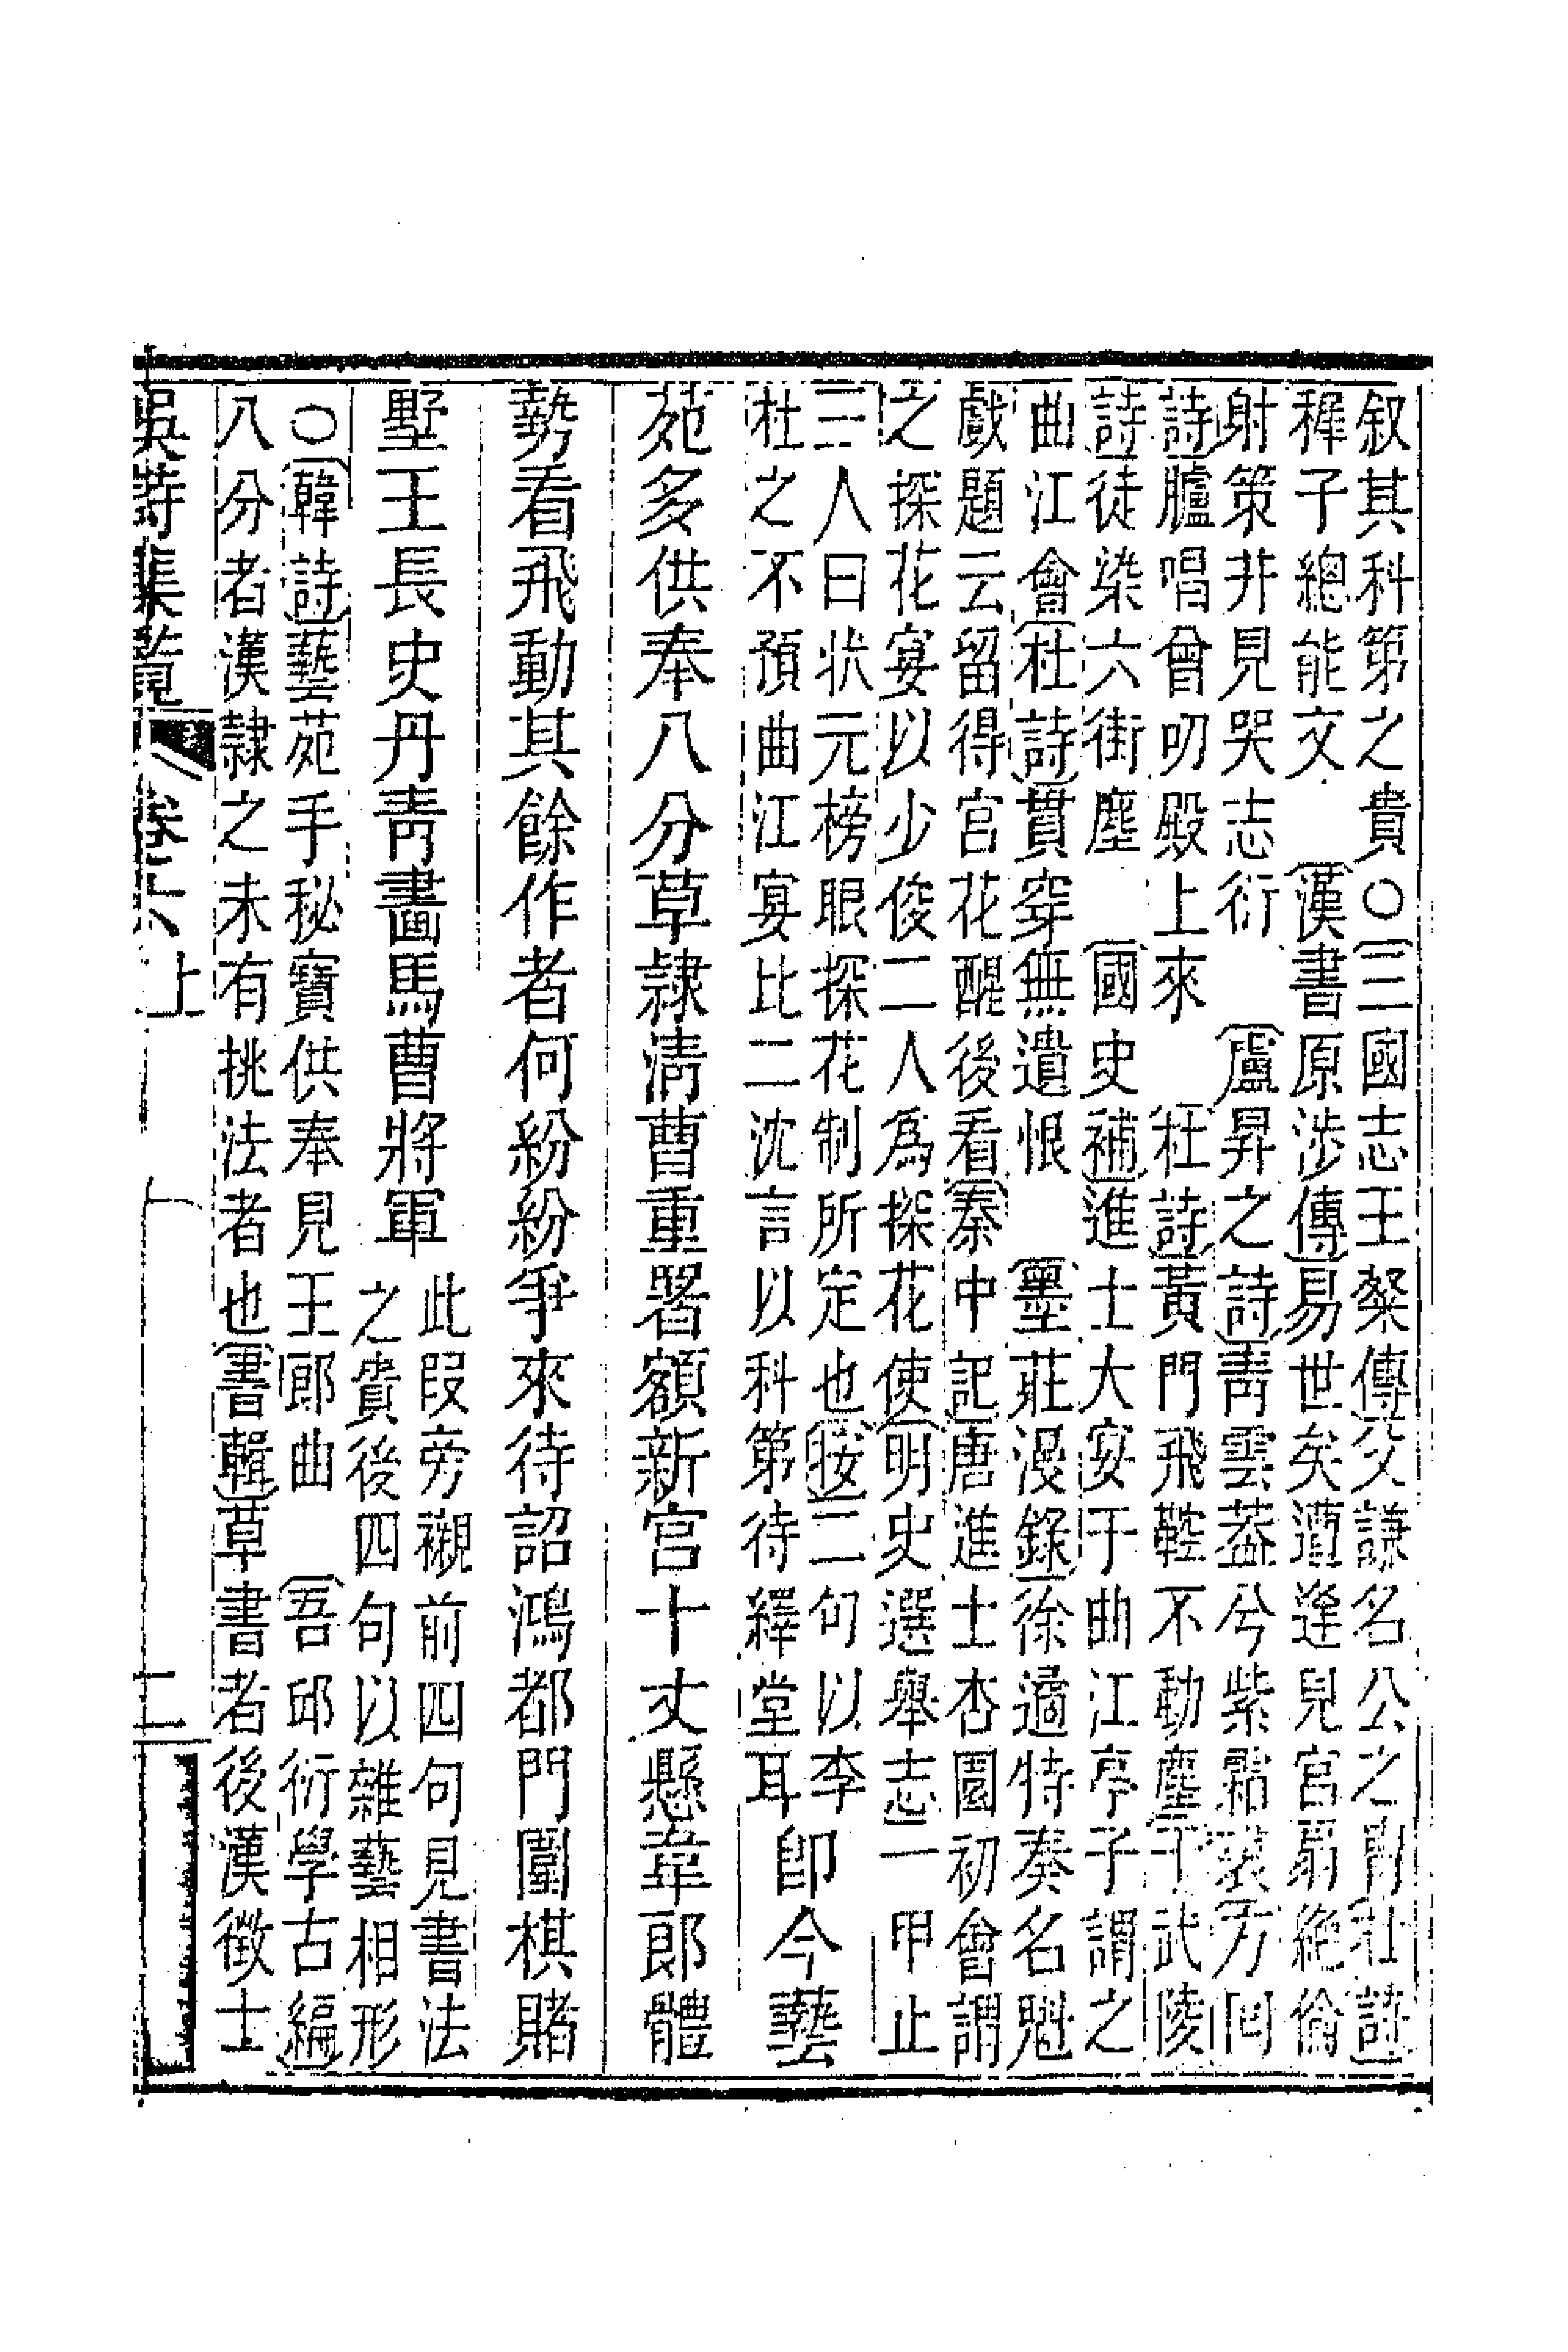 叙其科第之貴○三國志王粲傳父謙名公之胄杜詩
穉子總能文　漢書原涉傳易世矣遭逢兒宮扇絶倫
射策井見哭志衍　盧昇之詩靑雲葢兮紫霜裘方回
詩臚唱曾叨殿上來　杜詩黃門飛鞚不動塵于武陵
詩徒染六街塵　國史補進士大宴于曲江亭子謂之
曲江會杜詩貫穿無遺恨　墨莊漫錄徐遹特奏名魁
戲題云留得宮花醒後看秦中記唐進士杏園初會謂
之探花宴以少俊二人爲探花使明史選舉志一甲止
三人曰状元榜眼探花制所定也按二句以李
杜之不預曲江宴比二沈言以科第待繹堂耳
即今藝
苑多供奉八分草隷淸曹重署額新宮十丈懸韋郎體
勢看飛動其餘作者何紛紛爭來待詔鴻都門圍棋賭
墅王長史丹靑畵馬曹將軍
此叚旁襯前四句見書法
之貴後四句以雜藝相形
○韓詩藝苑手秘寶供奉見王郎曲　吾邱衍學古編
八分者漢隷之未有挑法者也書輯草書者後漢徵士
吳詩集覧　卷六上　二